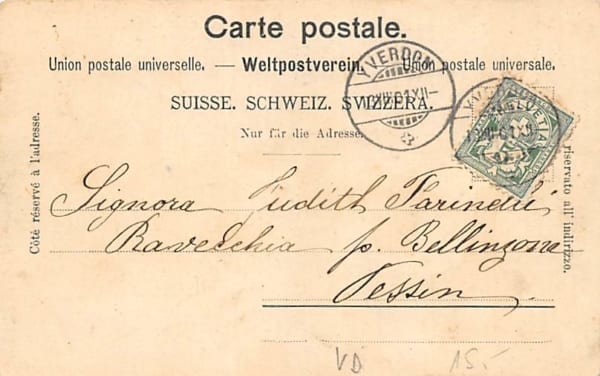 Carte postale.
Union postale universelle. — Weltpostverein. — Union postale universale.
SUISSE. SCHWEIZ. SVIZZERA.
Nur für die Adresse
Côté réservé à l'adresse.
riservato all' indirizzo.
YVERDON
HELVETIA
Signora Judith
Ravecchia p. Bellinzona
Tessin.
VD 15.-